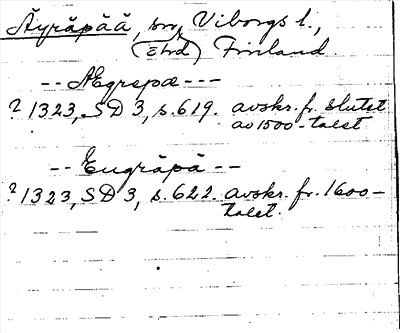 Äyräpää, sn, Viborgs l.,
(ehrd) Finland.
-- Ægrepæ ---
? 1323, SD 3, s. 619. avskr. fr. slutet
av 1500-talet
-- Eugräpä --
? 1323, SD 3, s. 622. avskr. fr. 1600-
talet.